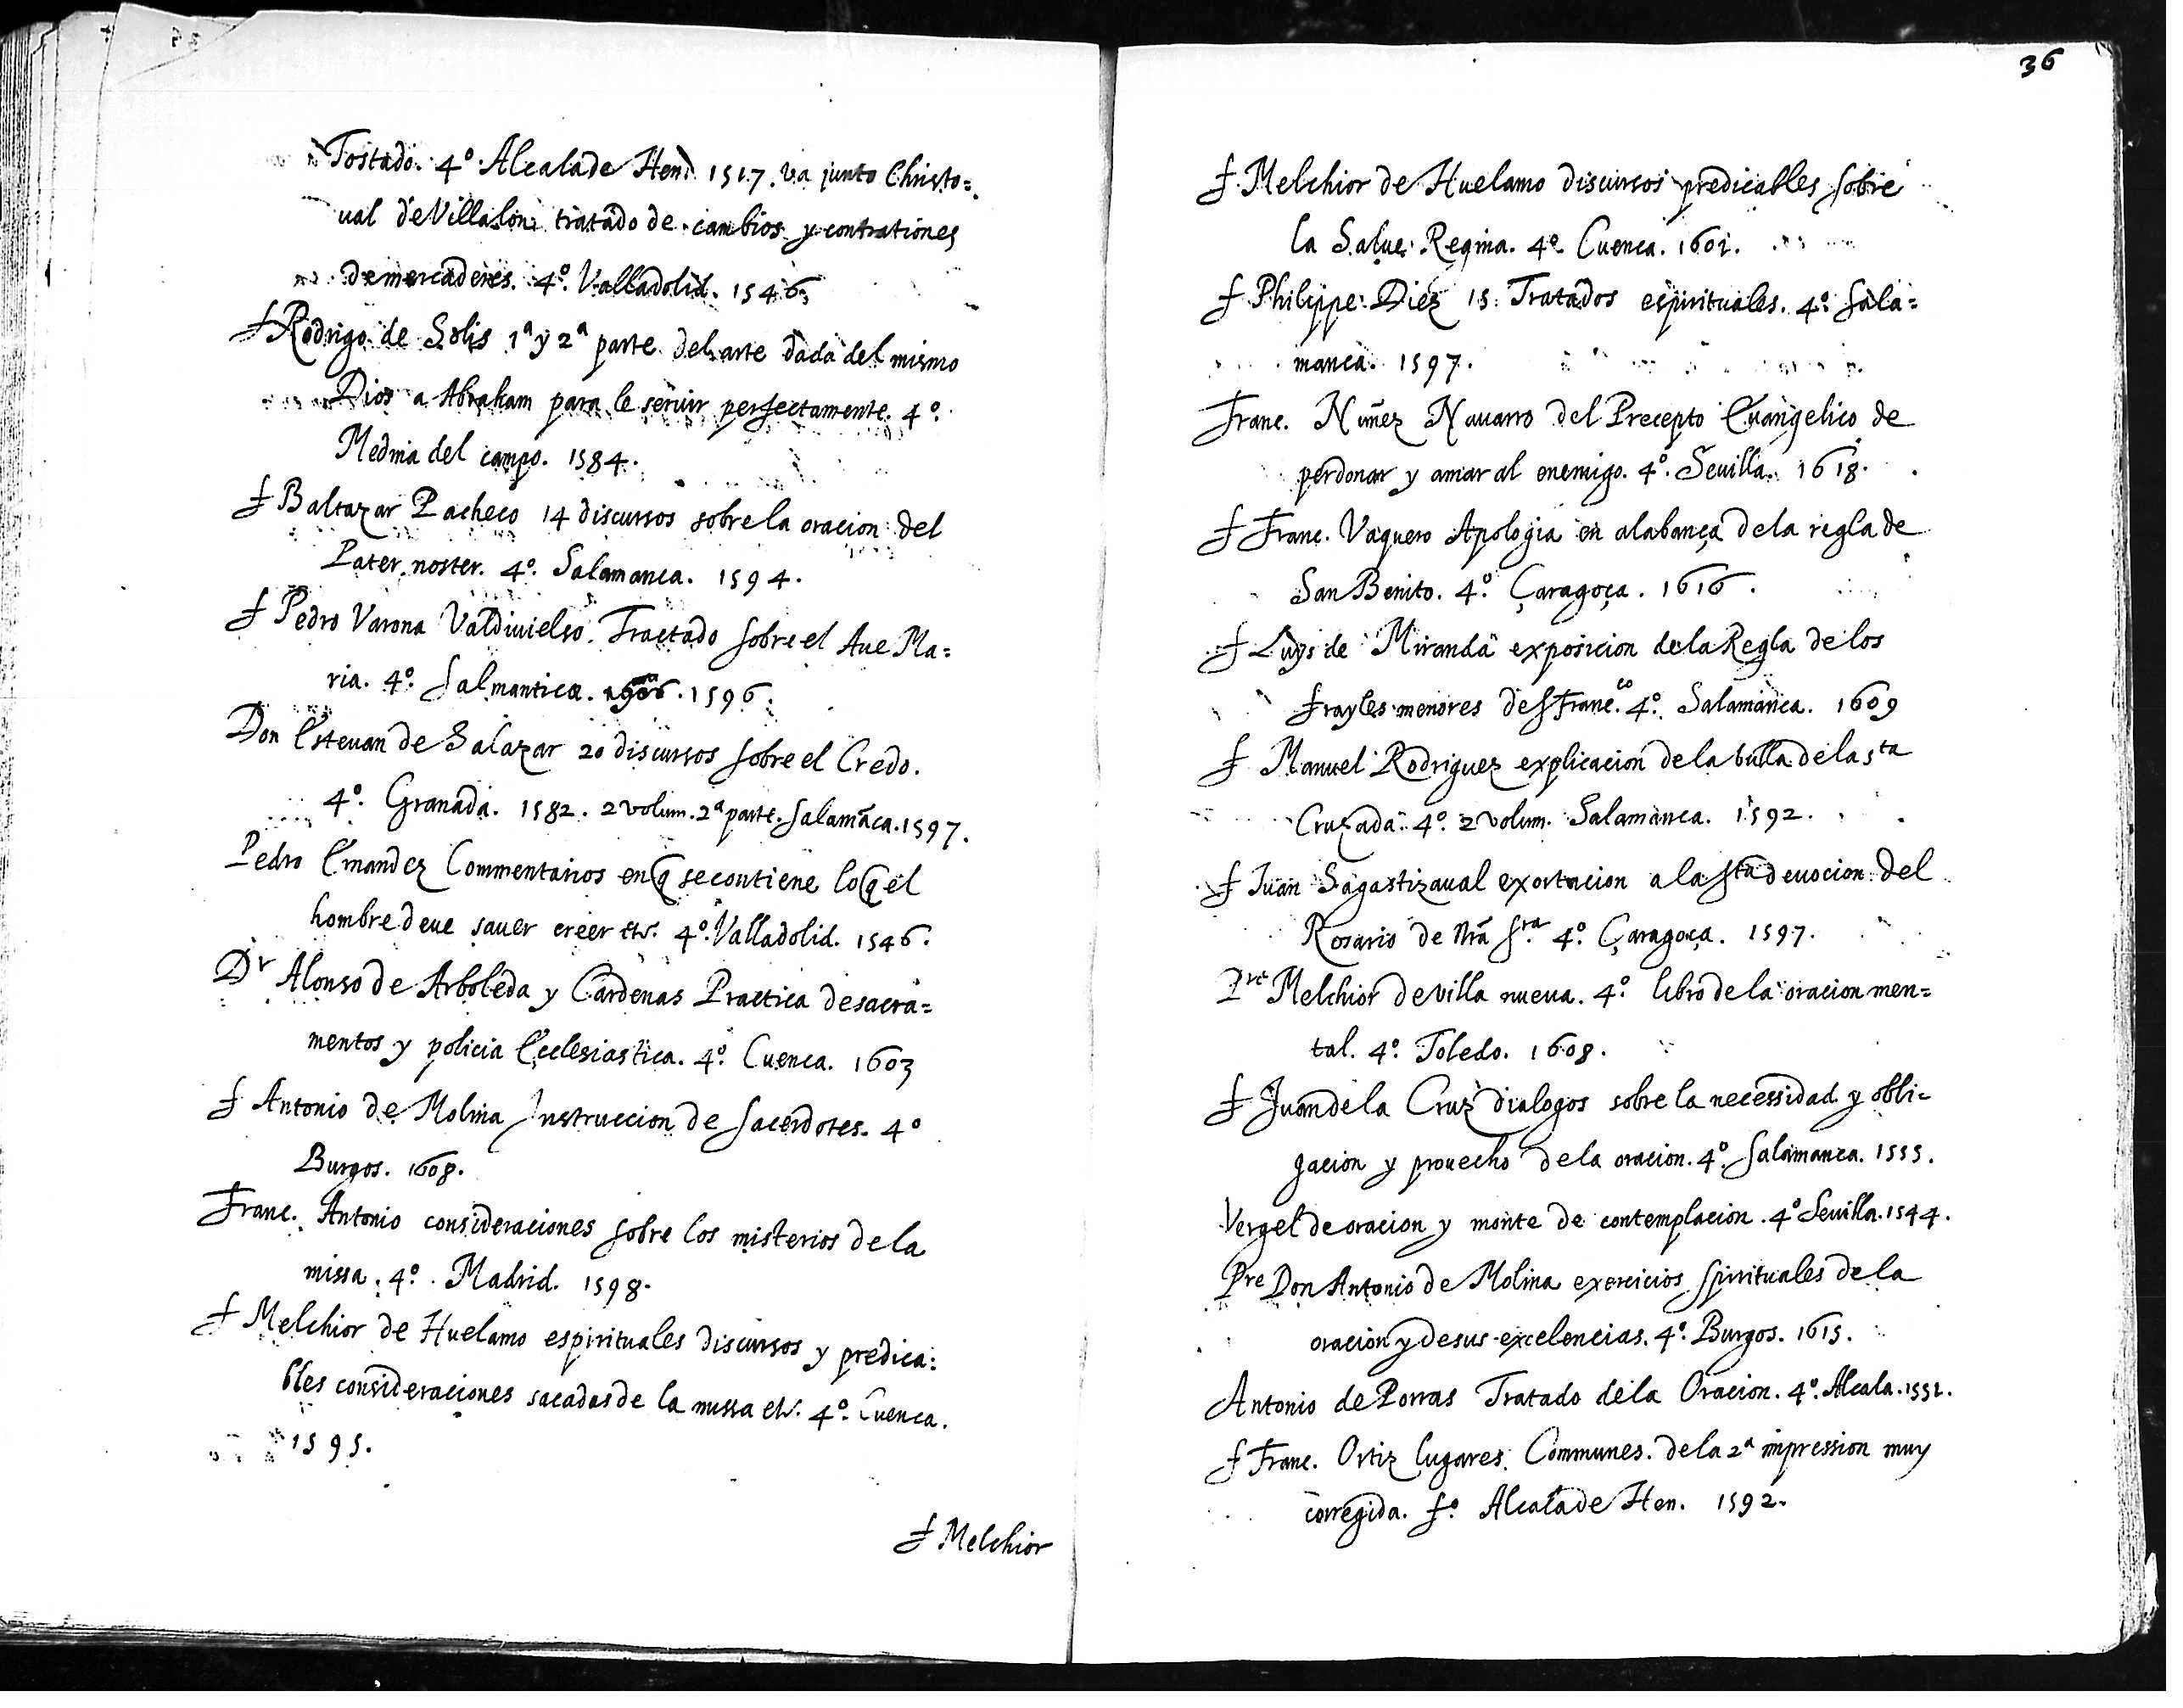 Tostado. 4º Alcala de Hen. 1517. va junto Christo=
ual de Villalon tratado de cambios y contrationes
de mercaderes. 4º. Valladolid. 1546.
f Rodrigo de Solis 1ª y 2ª parte del arte dada del mismo
Dios a Abraham para le seruir perfectamente. 4º.
Medina del campo. 1584.
f Baltazar Pacheco 14 discursos sobre la oracion del
Pater noster. 4º. Salamanca. 1594.
f Pedro Varona Valdiuielso. Tractado sobre el Aue Ma=
ria. 4º. Salmanticæ. 1596.
Don Esteuan de Salazar 20 discursos sobre el Credo.
4º. Granada. 1582. 2 volum. 2ª parte. Salamãca. 1597.
Pedro Ernandez Commentarios en q̃ se contiene lo q̃ el
hombre deue sauer creer etc. 4º. Valladolid. 1546.
Dr Alonso de Arboleda y Cardenas Practica de sacra=
mentos y policia Ecclesiastica. 4º. Cuenca. 1603
f Antonio de Molina Instruccion de Sacerdotes. 4º
Burgos. 1608.
Franc. Antonio consideraciones sobre los misterios de la
missa. 4º. Madrid. 1598.
f Melchior de Huelamo espirituales discursos y predica=
bles consideraciones sacadas de la missa etc. 4º. Cuenca.
1595.
f Melchior
36
f Melchior de Huelamo discursos predicables sobre
la Salue Regina. 4º. Cuenca. 1601.
f Philippe Diez 15 Tratados espirituales. 4º. Sala=
manca. 1597.
Franc. Nuñez Nauarro del Precepto Euangelico de
perdonar y amar al enemigo. 4º. Seuilla. 1618.
f Franc. Vaquero Apologia en alabança de la regla de
San Benito. 4º. Çaragoça. 1616.
f Luys de Miranda exposicion de la Regla de los
frayles menores de S Franc.co 4º. Salamanca. 1609
f Manuel Rodriguez explicacion de la bulla de la sta
Cruzada. 4º. 2 volum. Salamanca. 1592.
f Juan Sagastizaual exortacion a la Sta deuocion del
Rosario de nrã Sra. 4º. Çaragoça. 1597.
Pre Melchior de villa nueua. 4º. libro de la oracion men=
tal. 4º. Toledo. 1608.
f Juan de la Cruz dialogos sobre la necessidad y obli=
gacion y prouecho de la oracion. 4º. Salamanca. 1555.
Vergel de oracion y monte de contemplacion. 4º Seuilla. 1544.
Pre Don Antonio de Molina exercicios spirituales de la
oracion y de sus excelencias. 4º. Burgos. 1615.
Antonio de Porras Tratado de la Oracion. 4º. Alcala. 1552.
f Franc. Ortiz lugares Communes. de la 2ª impression muy
corregida. fº. Alcala de Hen. 1592.